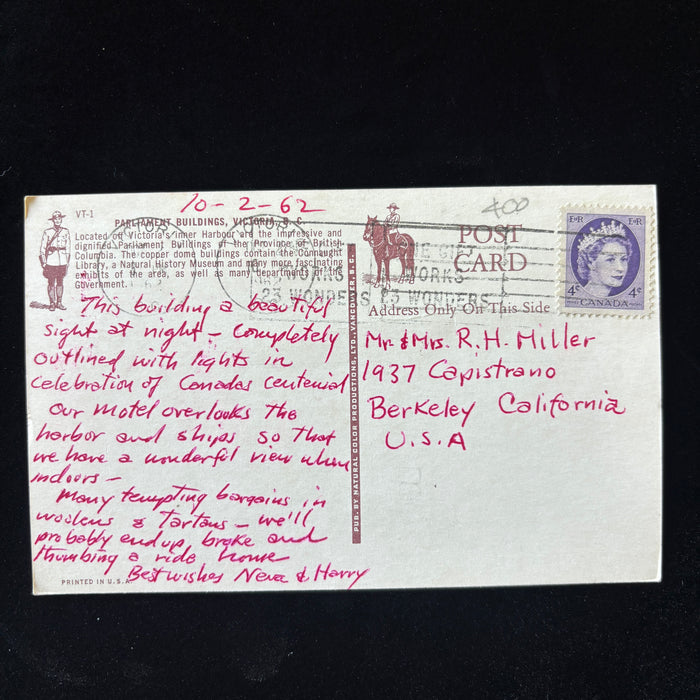 10-2-62
400
VT-1
PARLIAMENT BUILDINGS, VICTORIA, B. C.
Located on Victoria's inner Harbour are the impressive and
dignified Parliament Buildings of the Province of British
Columbia. The copper dome buildings contain the Connaught
Library, a Natural History Museum and many more fascinating
exhibits of the area, as well as many departments of the
Government.
This building a beautiful
sight at night - Completely
outlined with lights in
celebration of Canadas centenial
Our motel overlooks the
harbor and ships so that
we have a wonderful view when
indoors -
Many tempting bargains in
woolens & Tartans - we'll
probably end up, broke and
thumbing a ride home
Best wishes Neva & Harry
PRINTED IN U.S.A.
PUB. BY NATURAL COLOR PRODUCTIONS, LTD., VANCOUVER, B.C.
POST
CARD
Address Only On This Side
ONE GIFT
WORKS WORKS
23 WONDERS 23 WONDERS
EIIR EIIR
4c 4c
CANADA
Mr. & Mrs. R. H. Miller
1937 Capistrano
Berkeley California
U.S.A